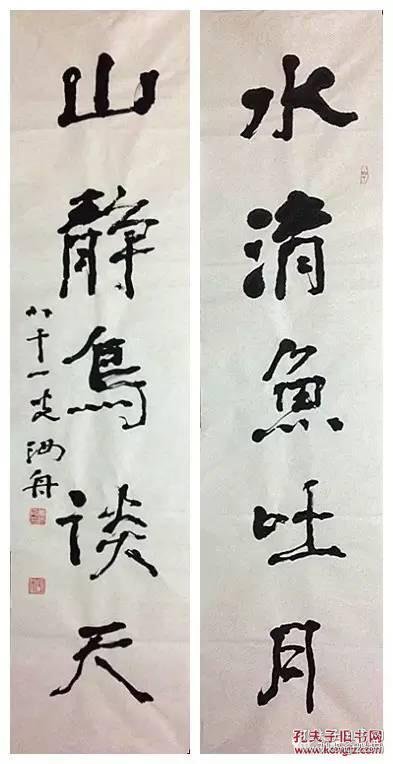 水清魚吐月
山靜鳥談天
八十一
舟
孔夫子旧书网